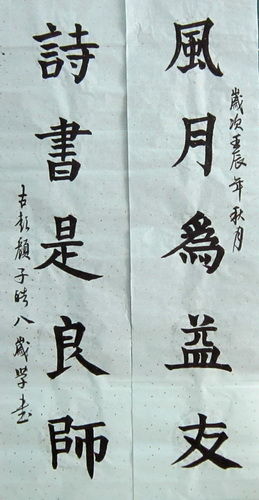 歲次壬辰年秋月
風月為益友
詩書是良師
古彭顏子皓八歲學書